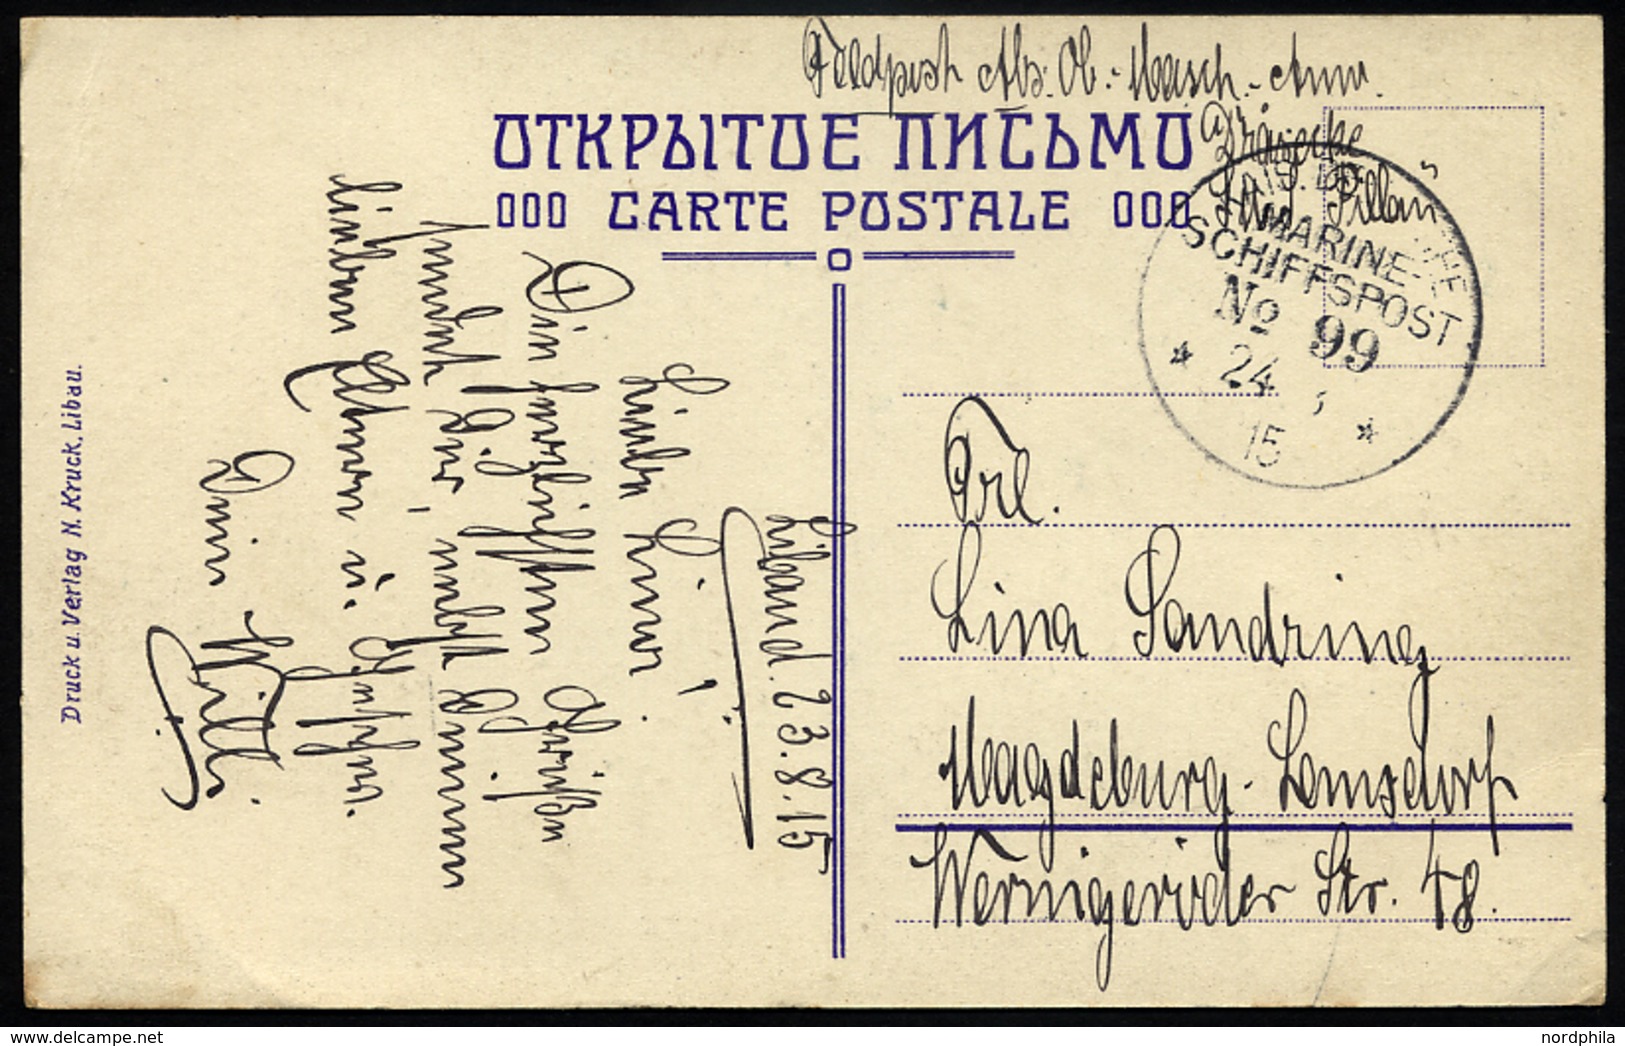 Feldpost Abs. Ob.-Masch.-Anw.
Dräsecke
S.M.S. "Pillau"
ОТКРЫТОЕ ПИСЬМО
000 CARTE POSTALE 000
KAIS. DEUTSCHE
MARINE-
SCHIFFSPOST
No 99
24 8
15
Frl.
Lina Sandring
Magdeburg-Lemsdorf
Wernigeröder Str. 48.
Libau d. 23.8.15
Liebe Lina!
Die herzlichsten Grüße
sendet Dir, nebst Deinen
lieben Eltern u. Geschw.
Dein Willi
Druck u. Verlag N. Kruck, Libau.